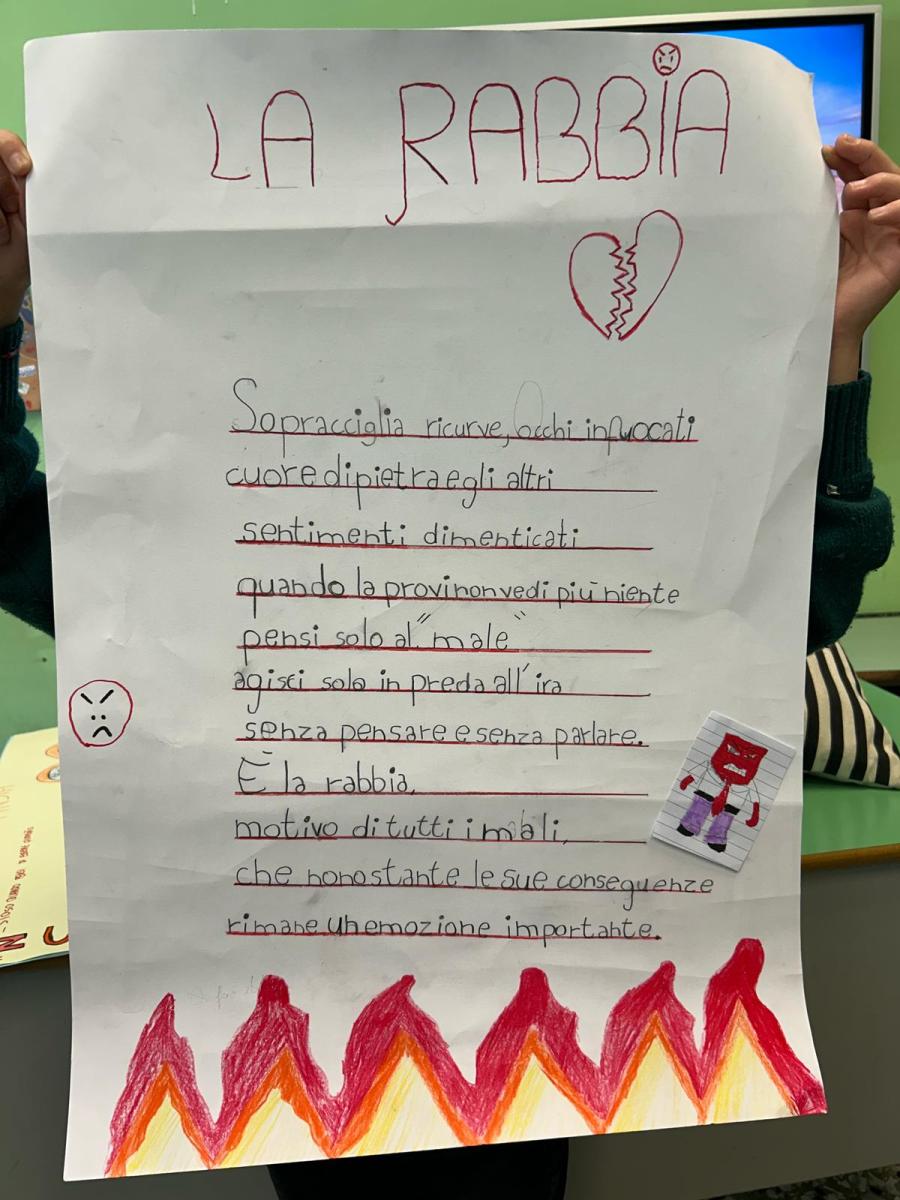 LA RABBIA
Sopracciglia ricurve, occhi infuocati
cuore di pietra e gli altri
sentimenti dimenticati
quando la provi non vedi più niente
pensi solo al "male"
agisci solo in preda all'ira
senza pensare e senza parlare.
È la rabbia,
motivo di tutti i mali,
che nonostante le sue conseguenze
rimane un emozione importante.